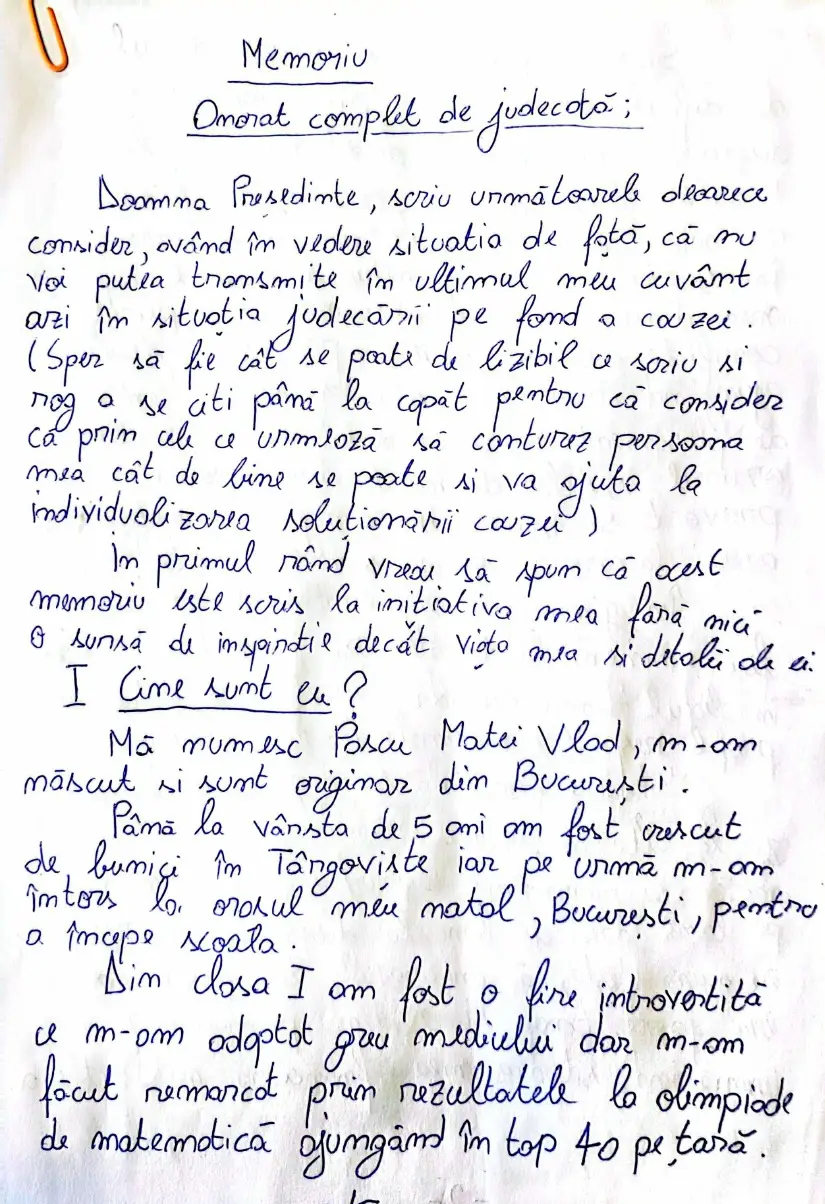 Memoriu
Onorat complet de judecată;
Doamna Presedinte, scriu următoarele deoarece
consider, având în vedere situatia de față, că nu
voi putea transmite în ultimul meu cuvânt
azi în situația judecării pe fond a cauzei.
(Sper să fie cât se poate de lizibil ce scriu si
rog a se citi până la capăt pentru că consider
că prin cele ce urmează să conturez persoana
mea cât de bine se poate si va ajuta la
individualizarea soluționării cauzei)
În primul rând vreau să spun că acest
memoriu este scris la initiativa mea fără nici
o sursă de inspiratie decât viața mea si detalii ale ei.
I Cine sunt eu?
Mă numesc Pascu Matei Vlad, m-am
născut si sunt originar din București.
Până la vârsta de 5 ani am fost crescut
de bunici în Târgoviste iar pe urmă m-am
întors la orasul meu natal, București, pentru
a începe scoala.
Din clasa I am fost o fire introvertită
ce m-am adaptat greu mediului dar m-am
făcut remarcat prin rezultatele la olimpiade
de matematică ajungând în top 40 pe țară.